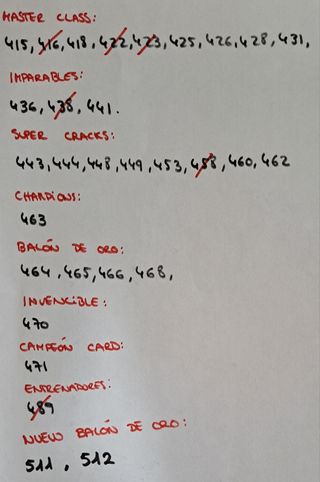 MASTER CLASS:
415, 416, 418, 422, 423, 425, 426, 428, 431,
IMPARABLES:
436, 438, 441.
SUPER CRACKS:
443, 444, 448, 449, 453, 458, 460, 462
CHARDIONS:
463
BALÓN DE ORO:
464, 465, 466, 468,
INVENCIBLE:
470
CAMPEÓN CARD:
471
ENTRENADORES:
489
NUEVO BALÓN DE ORO:
511, 512